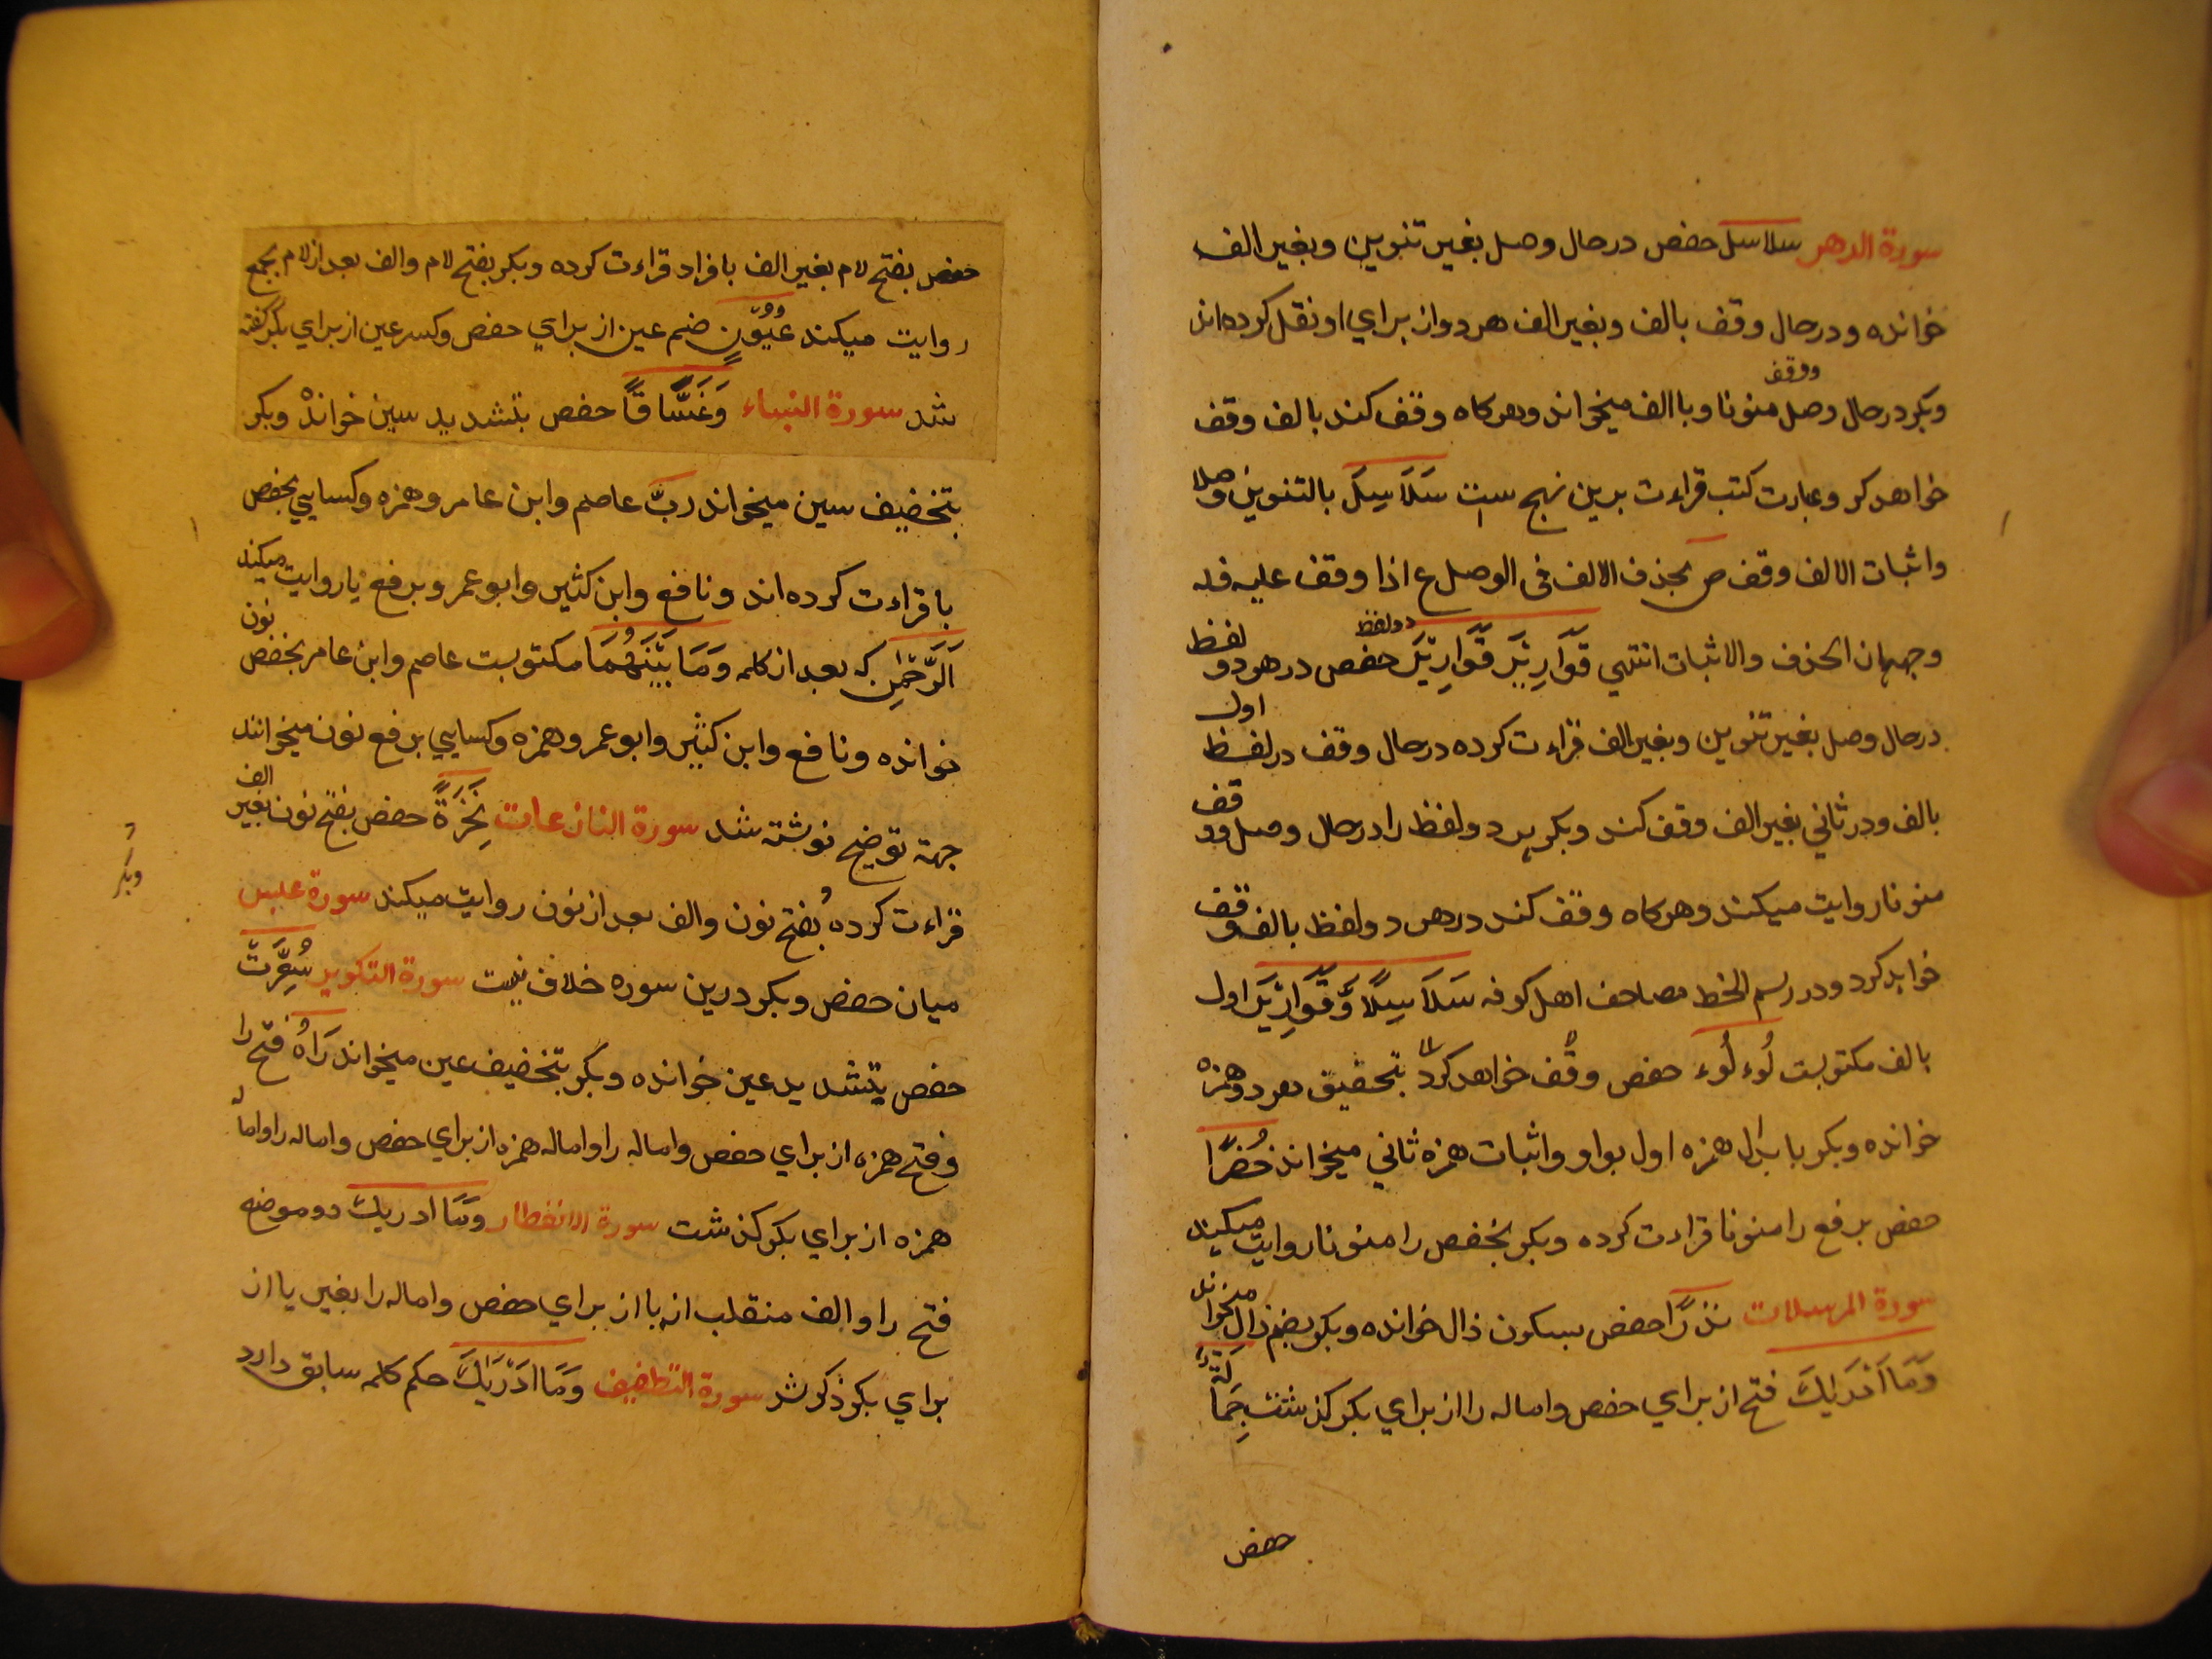 سورة الدهر سلاسل حفص درحال وصل بغیر تنوین وبغیر الف
خوانده ودرحال وقف بالف وبغیر الف هردو از برای او نقل کرده اند
ووقف
وبکر درحال وصل منونا وبا الف میخواند وهرکاه وقف کند بالف وقف
خواهد کر وعبارت کتب قراءت برین نهج ست سَلَاسِلَ بالتنوین وصلا
واثبات الالف وقف ص بحذف الالف فی الوصل ع اذا وقف علیه فله
وجهان الحذف والاثبات انتهی قَوَارِیْرَ قَوَارِیْرَ دولفظ حفص درهردو لفظ
درحال وصل بغیر تنوین وبغیر الف قراءت کرده درحال وقف درلفظ اول
بالف ودر ثانی بغیر الف وقف کند وبکر هر دولفظ را درحال وصل ووقف
منونا روایت میکند وهرکاه وقف کند درهر دولفظ بالف وقف
خواهد کرد ودر رسم الخط مصاحف اهل کوفه سَلَاسِلًا وَّقَوَارِیْرَا اول
بالف مکتوبست لُوءلُوء حفص وقف خواهد کرد بتحقیق هردو همزه
خوانده وبکر بابدال همزه اول بواو واثبات همزه ثانی میخواند خُضْرًا
حفص برفع را منونا قراءت کرده وبکر بخفص را منونا روایت میکند
سورة المرسلات نذرًا حفص بسکون ذال خوانده وبکر بضم ذال میخواند
وَمَا اَدْرَیٰكَ فتح از برای حفص واماله را از برای بکر کذشت جِمَالَتٌ
حفص
حفص بفتح لام بغیر الف بافراد قراءت کرده وبکر بفتح لام والف بعد از لام بجمع
روایت میکند عُیُوْنٍ ضم عین از برای حفص وکسر عین از برای بکر کفته
شد سورة النباء وَغَسَّاقًا حفص بتشدید سین خواند وبکر
بتخفیف سین میخواند رَبِّ عاصم وابن عامر وهمزه وکسایی بخفص
با قراءت کرده اند ونافع وابن کثیر وابو عمرو برفع با روایت میکند
اَلرَّحْمٰنِ که بعد از کلمه وَمَا بَیْنَهُمَا مکتوبست عاصم وابن عامر بخفص نون
خوانده ونافع وابن کثیر وابو عمرو همزه وکسایی برفع نون میخوانند
جهة توضیح نوشته شد سورة النازعات نَخِرَةً حفص بفتح نون بغیر الف
قراءت کرده بفتح نون والف بعد از نون روایت میکند سورة عبس
وبکر
میان حفص وبکر درین سوره خلاف نیست سورة التکویر سُعِّرَتْ
حفص بتشدید عین خوانده وبکر بتخفیف عین میخواند رَاٰهُ فتح را
وفتح همزه از برای حفص واماله را واماله همزه از برای حفص واماله را واماله
همزه از برای بکر کذشت سورة الانفطار وَمَا ادریك دو موضع
فتح را والف منقلب از یا از برای حفص واماله را بغیر یا از
برای بکر ذکر شد سورة التطفیف وَمَا اَدْرَیٰكَ حکم کلمه سابق دارد